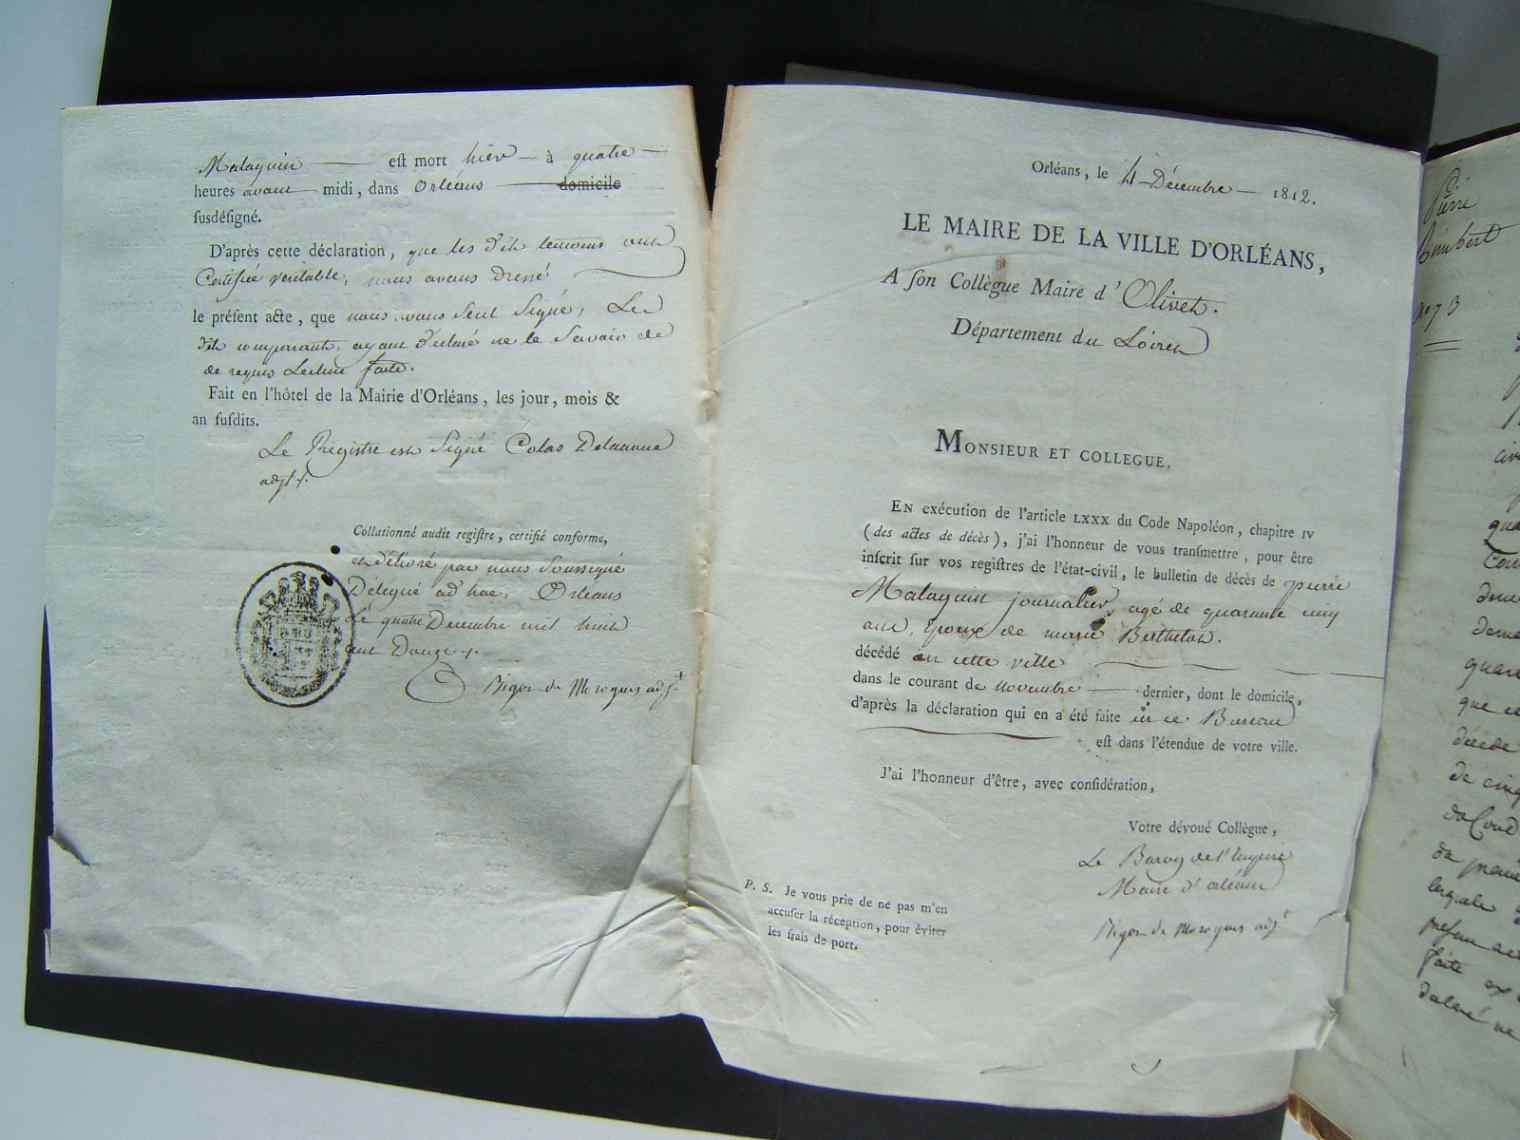 Malaquin est mort hier à quatre
heures avant midi, dans Orléans domicile
susdésigné.
D'après cette déclaration, que les d'its temoins ont
Certifiée veritable, nous avons Dressé
le présent acte, que nous avons Seul Signé, Les
dits comparants, ayant déclaré ne le Savoir de
de requis Lecture faite.
Fait en l'hôtel de la Mairie d'Orléans, les jour, mois &
an susdits.
Le Registre est Signé Colas Delanoue
adjt.
Collationné audit registre, certifié conforme,
et délivré par nous Soussigné
Délégué ad'hoc, Orleans
Le quatre Decembre mil huit
cent Douze
Bigot de Morogues adjt
Orléans, le 4 Décembre 1812.
LE MAIRE DE LA VILLE D'ORLÉANS,
A son Collègue Maire d'Olivet.
Département du Loiret
MONSIEUR ET COLLEGUE,
EN exécution de l'article LXXX du Code Napoléon, chapitre IV
(des actes de décès), j'ai l'honneur de vous transmettre, pour être
inscrit sur vos registres de l'état-civil, le bulletin de décès de pierre
Malaquin journalier, agé de quarante cinq
ans, Epoux de marie Berthelot.
décédé en cette ville
dans le courant de novembre dernier, dont le domicile,
d'après la déclaration qui en a été faite en ce Bureau
est dans l'étendue de votre ville.
J'ai l'honneur d'être, avec considération,
Votre dévoué Collègue,
Le Baron de l'Empire
Maire d'orléans
Bigot de Morogues adjt
P. S. Je vous prie de ne pas m'en
accuser la réception, pour éviter
les frais de port.
Pierre
Rimbert